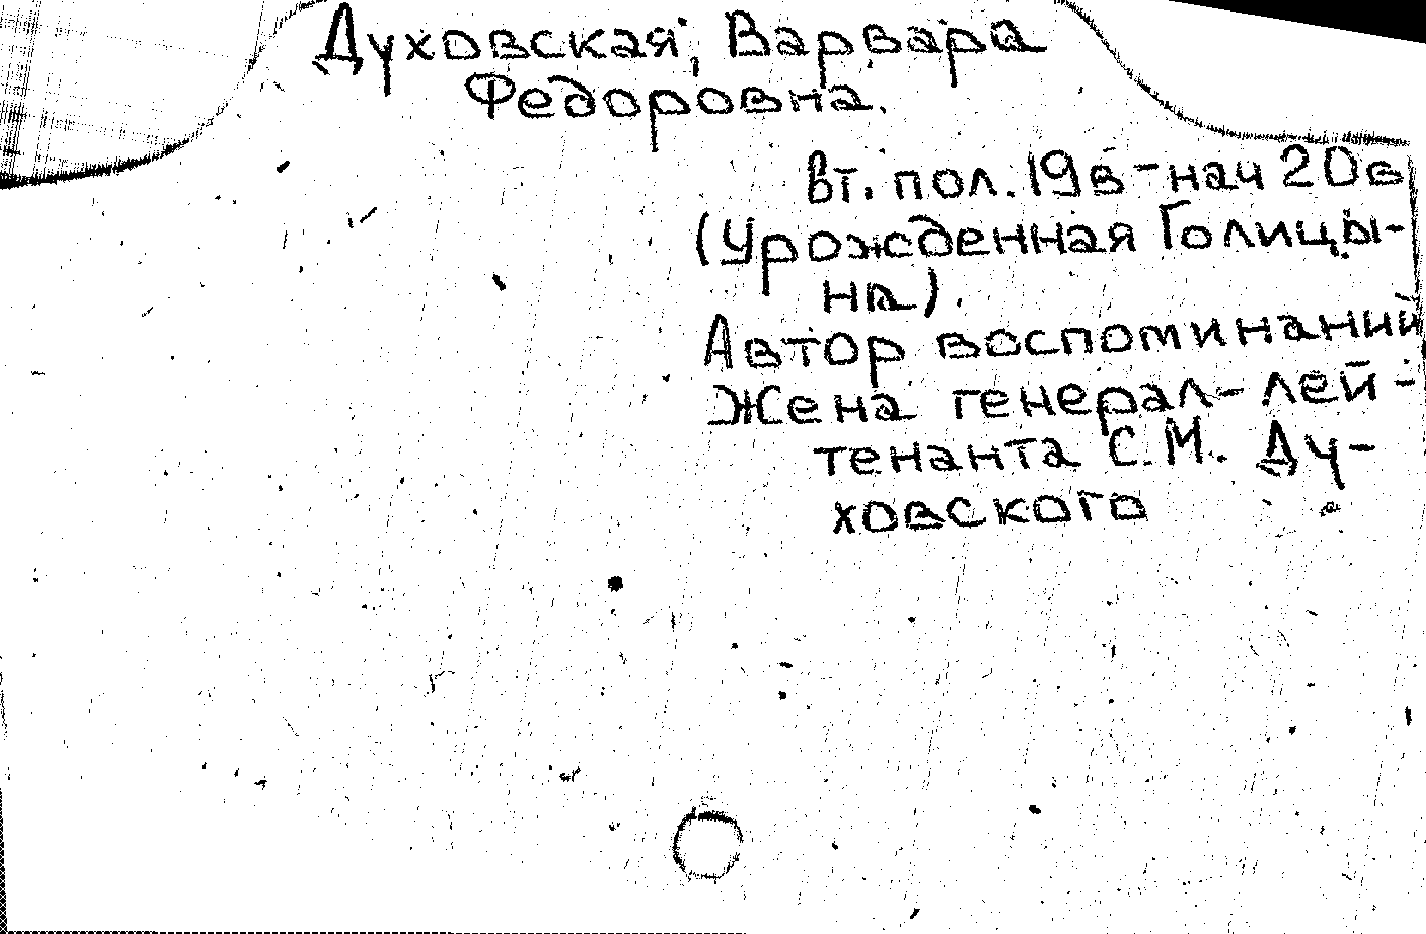 Духовская, Варвара
Федоровна.
вт. пол. 19 в - нач 20 в
(Урожденная Голицы-
на).
Автор воспоминаний
Жена генерал-лей-
тенанта С.М. Ду-
ховского